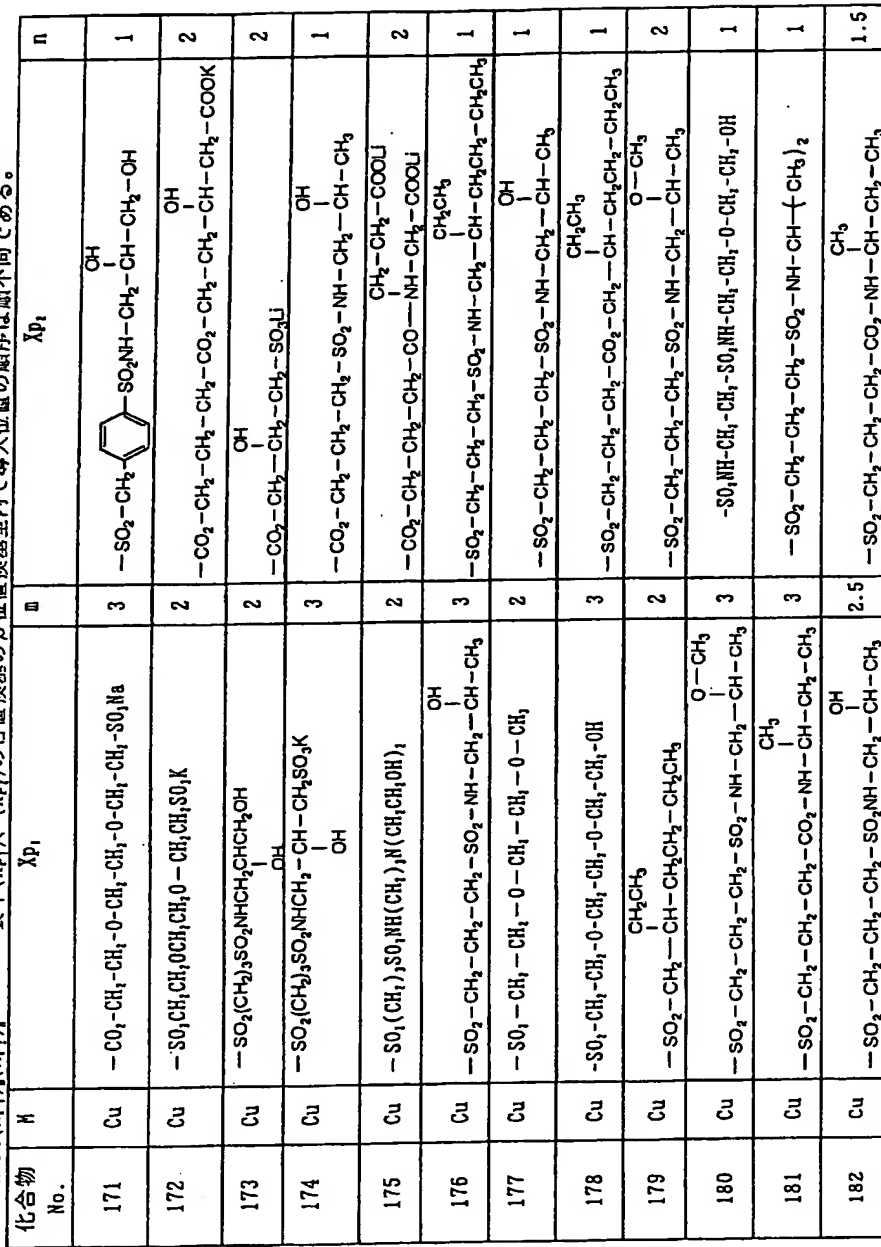 である。
化合物 No. M Xp₁ m Xp₂ n
171 Cu −CO₂-CH₂-CH₂-O-CH₂-CH₂-O-CH₂-CH₂-SO₃Na 3 −SO₂−CH₂−⌬−SO₂NH−CH₂−CH(OH)−CH₂−OH 1
172 Cu −SO₂CH₂CH₂OCH₂CH₂O−CH₂CH₂SO₃K 2 −CO₂−CH₂−CH₂−CH₂−CO₂−CH₂−CH₂−CH(OH)−CH₂−COOK 2
173 Cu −SO₂(CH₂)₃SO₂NHCH₂CH(OH)CH₂OH 2 −CO₂−CH₂−CH(OH)−CH₂−CH₂−SO₃Li 2
174 Cu −SO₂(CH₂)₃SO₂NHCH₂−CH(OH)−CH₂SO₃K 3 −CO₂−CH₂−CH₂−CH₂−SO₂−NH−CH₂−CH(OH)−CH₃ 1
175 Cu −SO₂(CH₂)₃SO₂NH(CH₂)₃N(CH₂CH₂OH)₂ 2 −CO₂−CH₂−CH₂−CH₂−CO−NH(CH₂−CH₂−COOLi)−CH₂−COOLi 2
176 Cu −SO₂−CH₂−CH₂−CH₂−SO₂−NH−CH₂−CH(OH)−CH₃ 3 −SO₂−CH₂−CH₂−CH₂−SO₂−NH−CH₂−CH(CH₂CH₃)−CH₂CH₂−CH₂CH₃ 1
177 Cu −SO₂−CH₂−CH₂−O−CH₂−CH₂−O−CH₃ 2 −SO₂−CH₂−CH₂−CH₂−SO₂−NH−CH₂−CH(OH)−CH₃ 1
178 Cu -SO₂-CH₂-CH₂-O-CH₂-CH₂-O-CH₂-CH₂-OH 3 −SO₂−CH₂−CH₂−CH₂−CO₂−CH₂−CH(CH₂CH₃)−CH₂CH₂−CH₂CH₃ 1
179 Cu −SO₂−CH₂−CH(CH₂CH₃)−CH₂CH₂−CH₂CH₃ 2 −SO₂−CH₂−CH₂−CH₂−SO₂−NH−CH₂−CH(O−CH₃)−CH₃ 2
180 Cu −SO₂−CH₂−CH₂−CH₂−SO₂−NH−CH₂−CH(O−CH₃)−CH₃ 3 -SO₂NH-CH₂-CH₂-SO₂NH-CH₂-CH₂-O-CH₂-CH₂-OH 1
181 Cu −SO₂−CH₂−CH₂−CH₂−CO₂−NH−CH(CH₃)−CH₂−CH₃ 3 −SO₂−CH₂−CH₂−CH₂−SO₂−NH−CH−(CH₃)₂ 1
182 Cu −SO₂−CH₂−CH₂−CH₂−SO₂NH−CH₂−CH(OH)−CH₃ 2.5 −SO₂−CH₂−CH₂−CH₂−CO₂−NH−CH(CH₃)−CH₂−CH₃ 1.5